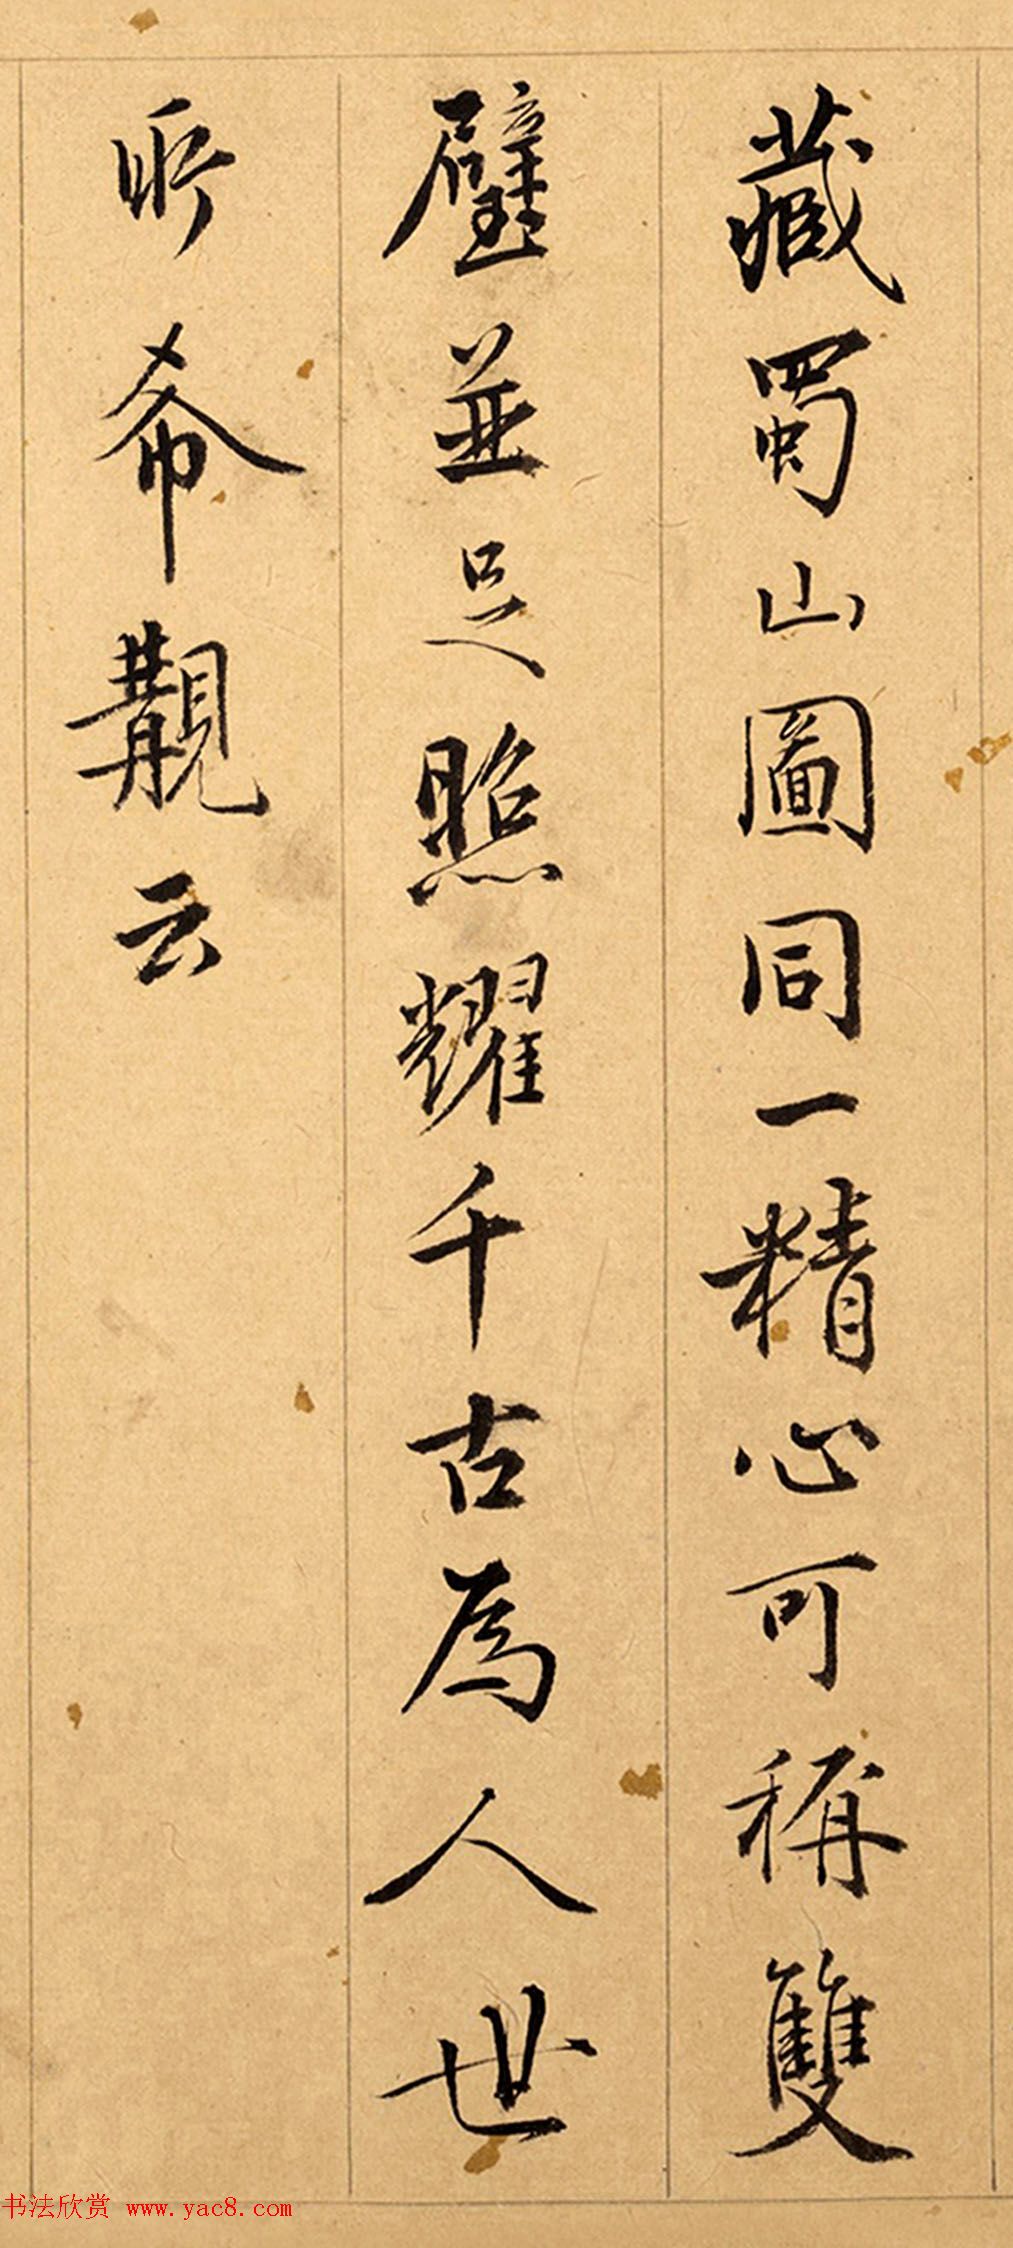 藏蜀山圖同一精心可稱雙
璧並足照耀千古為人世
所希覯云
书法欣赏 www.yac8.com